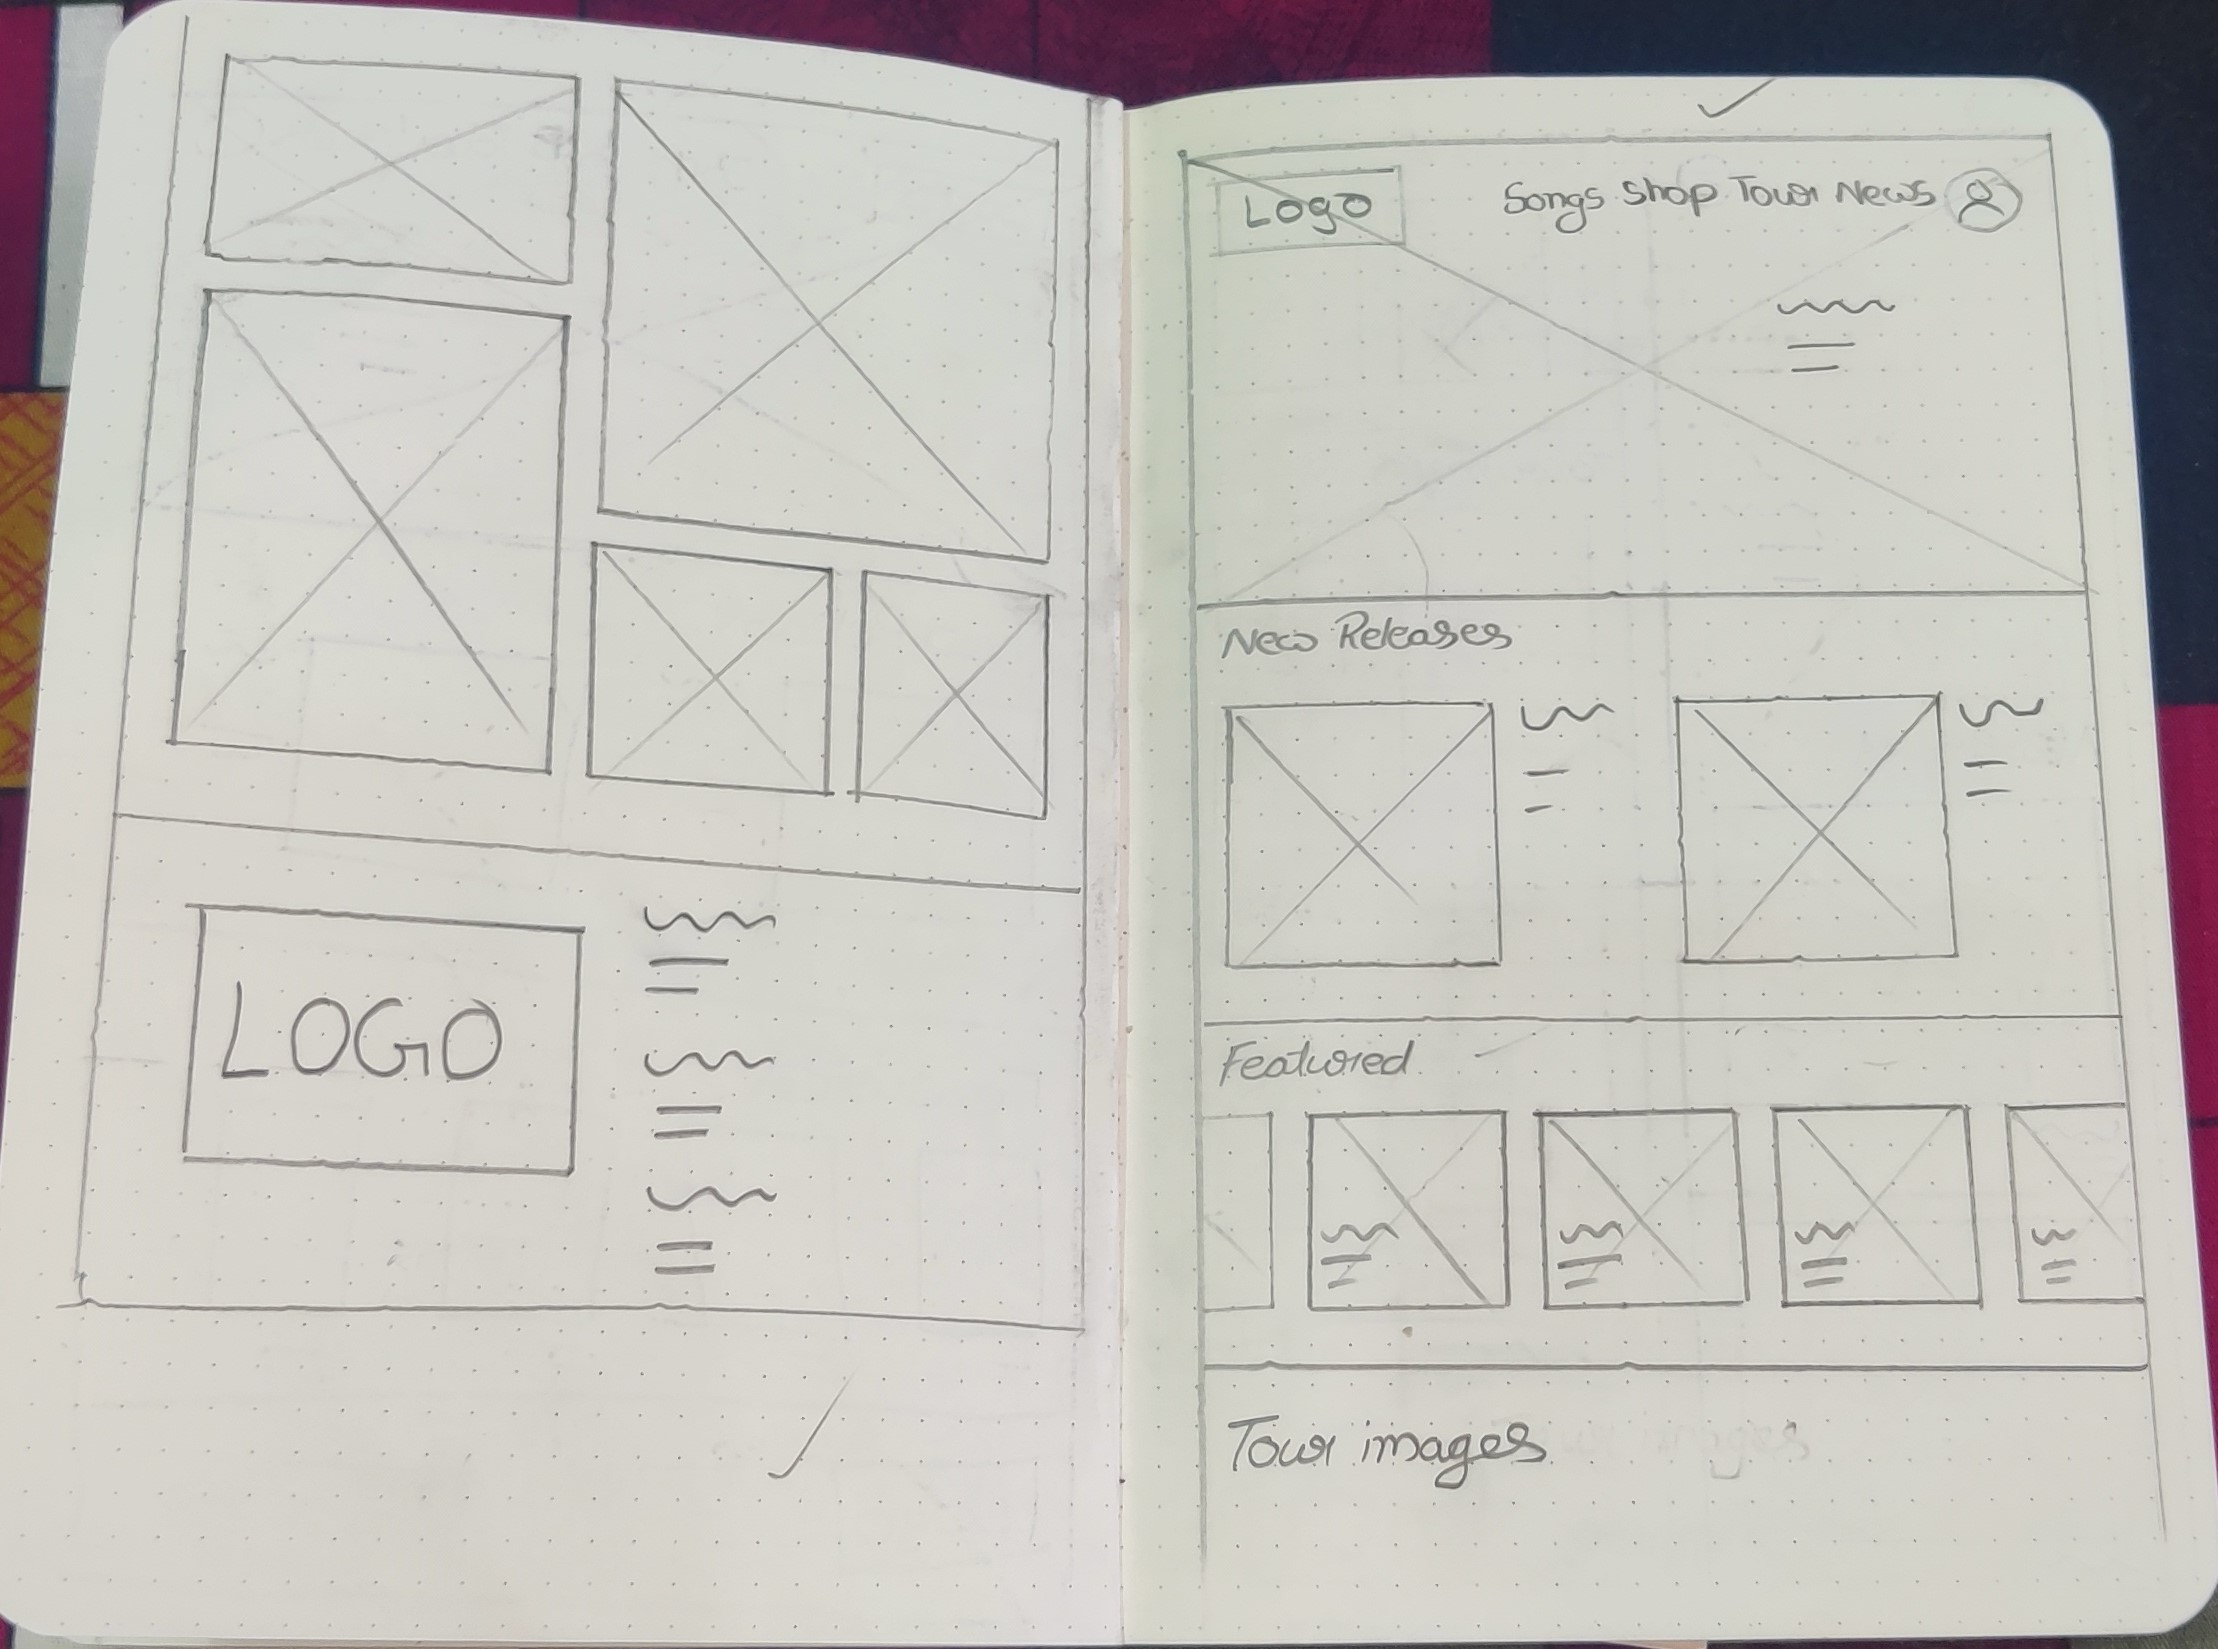 LOGO
Logo
Songs Shop Tour News
New Releases
Featured
Tour images